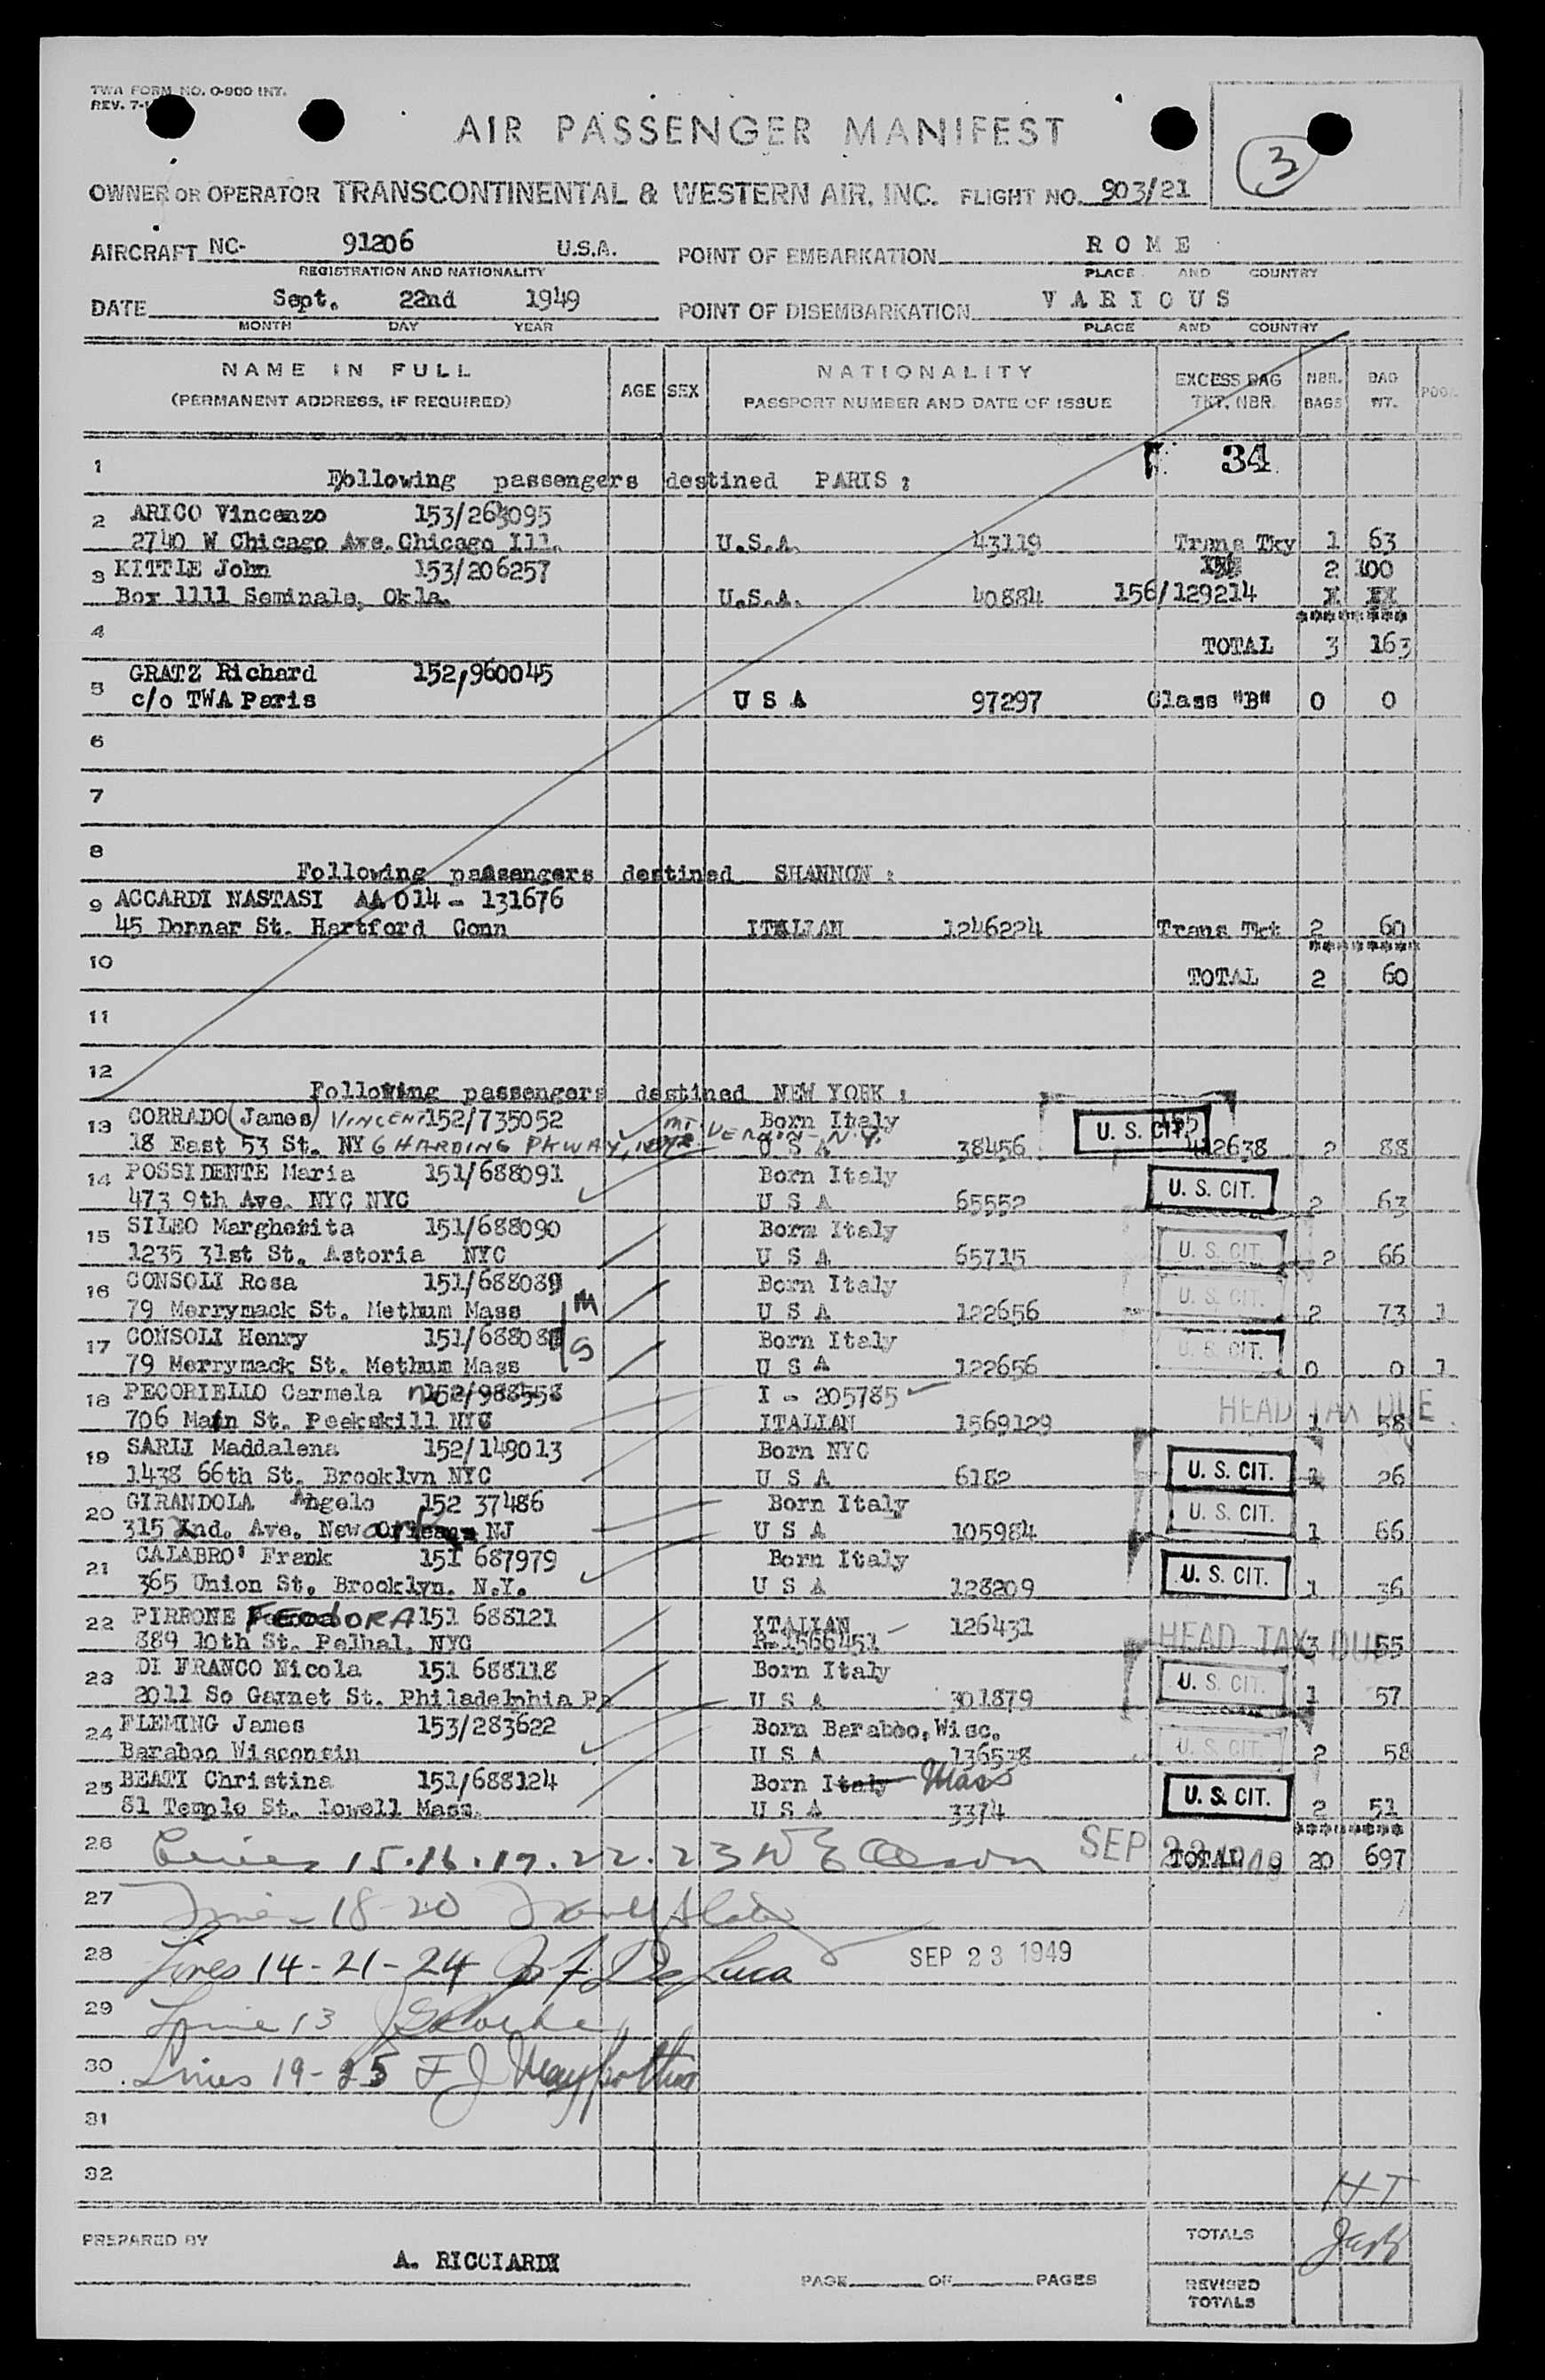 TWA FORM NO. O-900 INT.
REV. 7-
AIR PASSENGER MANIFEST
3
OWNER OR OPERATOR TRANSCONTINENTAL & WESTERN AIR, INC. FLIGHT NO. 903/21
AIRCRAFT NC- 91206 U.S.A. POINT OF EMBARKATION ROME
REGISTRATION AND NATIONALITY PLACE AND COUNTRY
DATE Sept. 22nd 1949 POINT OF DISEMBARKATION VARIOUS
MONTH DAY YEAR PLACE AND COUNTRY
NAME IN FULL AGE SEX NATIONALITY EXCESS BAG NBR. BAG
(PERMANENT ADDRESS, IF REQUIRED) PASSPORT NUMBER AND DATE OF ISSUE TKT. NBR. BAGS WT.
34
1 Following passengers destined PARIS :
2 ARICO Vincenzo 153/263095
2740 W Chicago Ave. Chicago Ill. U.S.A. 43119 Trans Tky 1 63
3 KITTLE John 153/206257 2 100
Box 1111 Seminale, Okla. U.S.A. 40884 156/129214
4 TOTAL 3 163
5 GRATZ Richard 152,960045
c/o TWA Paris U S A 97297 Class "B" 0 0
6
7
8 Following passengers destined SHANNON :
9 ACCARDI NASTASI AA 014 - 131676
45 Donnar St. Hartford Conn ITALIAN 1246224 Trans Tkt 2 60
10 TOTAL 2 60
11
12 Following passengers destined NEW YORK :
13 CORRADO (James) VINCENT 152/735052 Born Italy 155
18 East 53 St. NY 6 HARDING PKWAY, MT VERNON - N.Y. U S A 38456 U. S. CIT. 412638 2 88
14 POSSIDENTE Maria 151/688091 Born Italy
473 9th Ave. NYC NYC U S A 65552 U. S. CIT. 2 63
15 SILEO Margherita 151/688090 Born Italy
1235 31st St. Astoria NYC U S A 65715 U. S. CIT. 2 66
16 CONSOLI Rosa 151/688089 Born Italy
79 Merrymack St. Methum Mass M U S A 122656 U. S. CIT. 2 73 1
17 CONSOLI Henry 151/68808 Born Italy
79 Merrymack St. Methum Mass S U S A 122656 U. S. CIT. 0 0 1
18 PECORIELLO Carmela 152/988558 I - 205785
706 Main St. Peekskill NYC ITALIAN 1569129 HEAD TAX DUE 1 58
19 SARLI Maddalena 152/149013 Born NYC
1438 66th St. Brooklyn NYC U S A 6182 U. S. CIT. 1 26
20 GIRANDOLA Angelo 152 37486 Born Italy
315 2nd. Ave. Newark NJ U S A 105984 U. S. CIT. 1 66
21 CALABRO' Frank 151 687979 Born Italy
365 Union St. Brooklyn. N.Y. U S A 128209 U. S. CIT. 1 36
22 PIRRONE FEODORA 151 688121 ITALIAN 126431
889 10th St. Pelhal. NYC R-1566451 HEAD TAX DUE 3 55
23 DI FRANCO Nicola 151 688118 Born Italy
2011 So Garnet St. Philadelphia Pa U S A 301879 U. S. CIT. 1 57
24 FLEMING James 153/283622 Born Baraboo, Wisc.
Baraboo Wisconsin U S A 136538 U. S. CIT. 2 58
25 BEATI Christina 151/688124 Born Italy Mass
81 Temple St. Lowell Mass. U S A 3374 U. S. CIT. 2 51
26 Lines 15.16.17.22.23 SEP 22 1949 TOTAL 20 697
27 Lines 18-20
28 Lines 14-21-24 De Luca SEP 23 1949
29 Line 13
30 Lines 19-25 F J
31
32
HT
PREPARED BY A. RICCIARDI TOTALS
PAGE OF PAGES REVISED
TOTALS